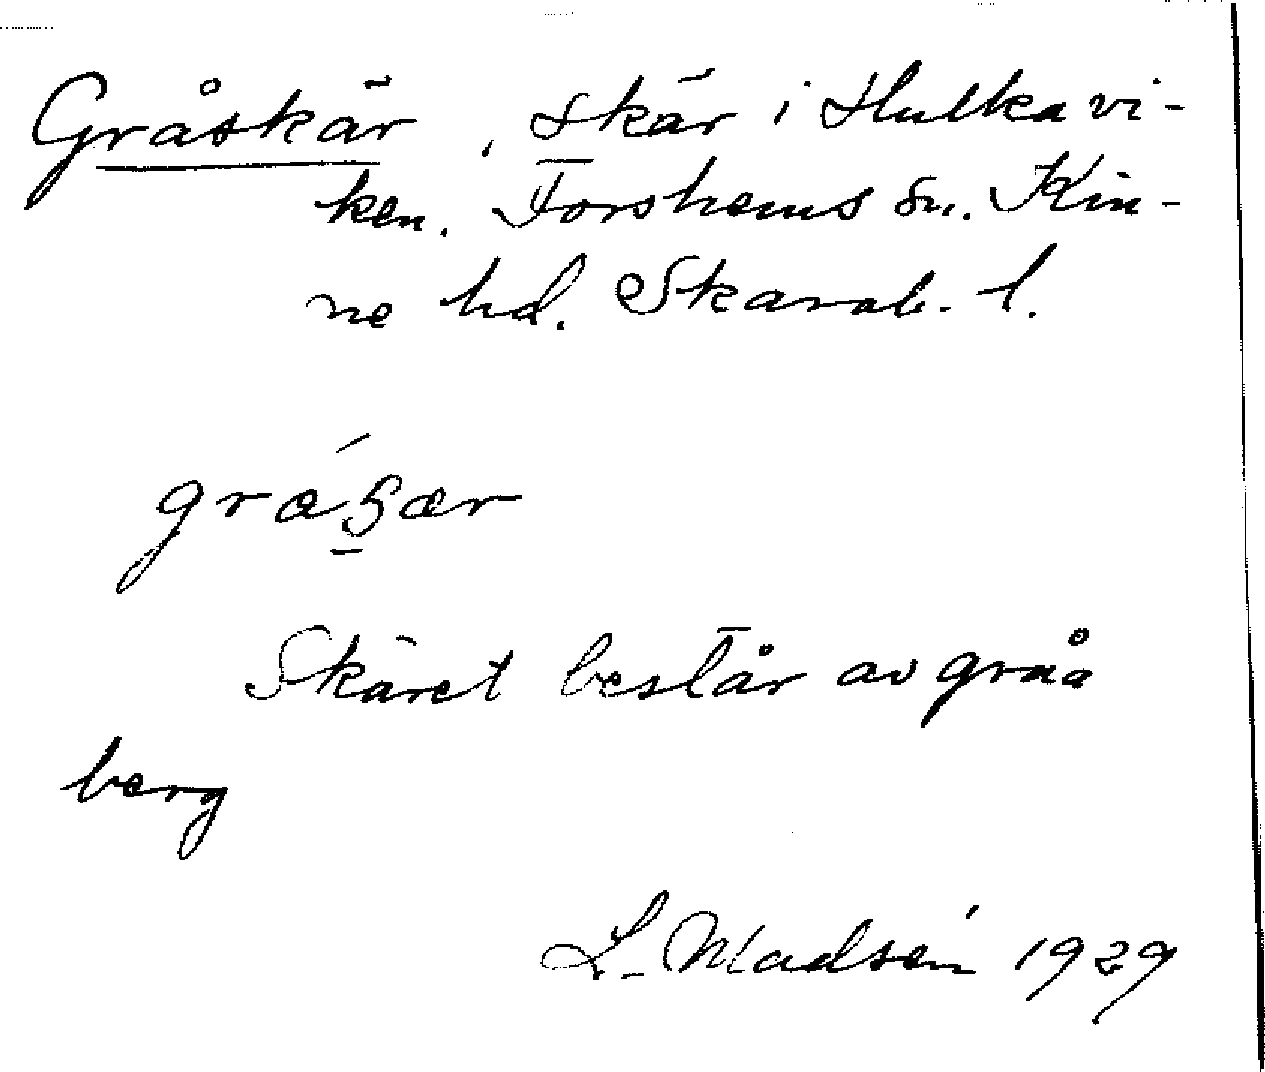 Gråskär, skär i Hulkavi-
ken. Forshems sn. Kin-
ne hd. Skarab. l.
Skäret består av gråa
berg
L. Madsén 1929